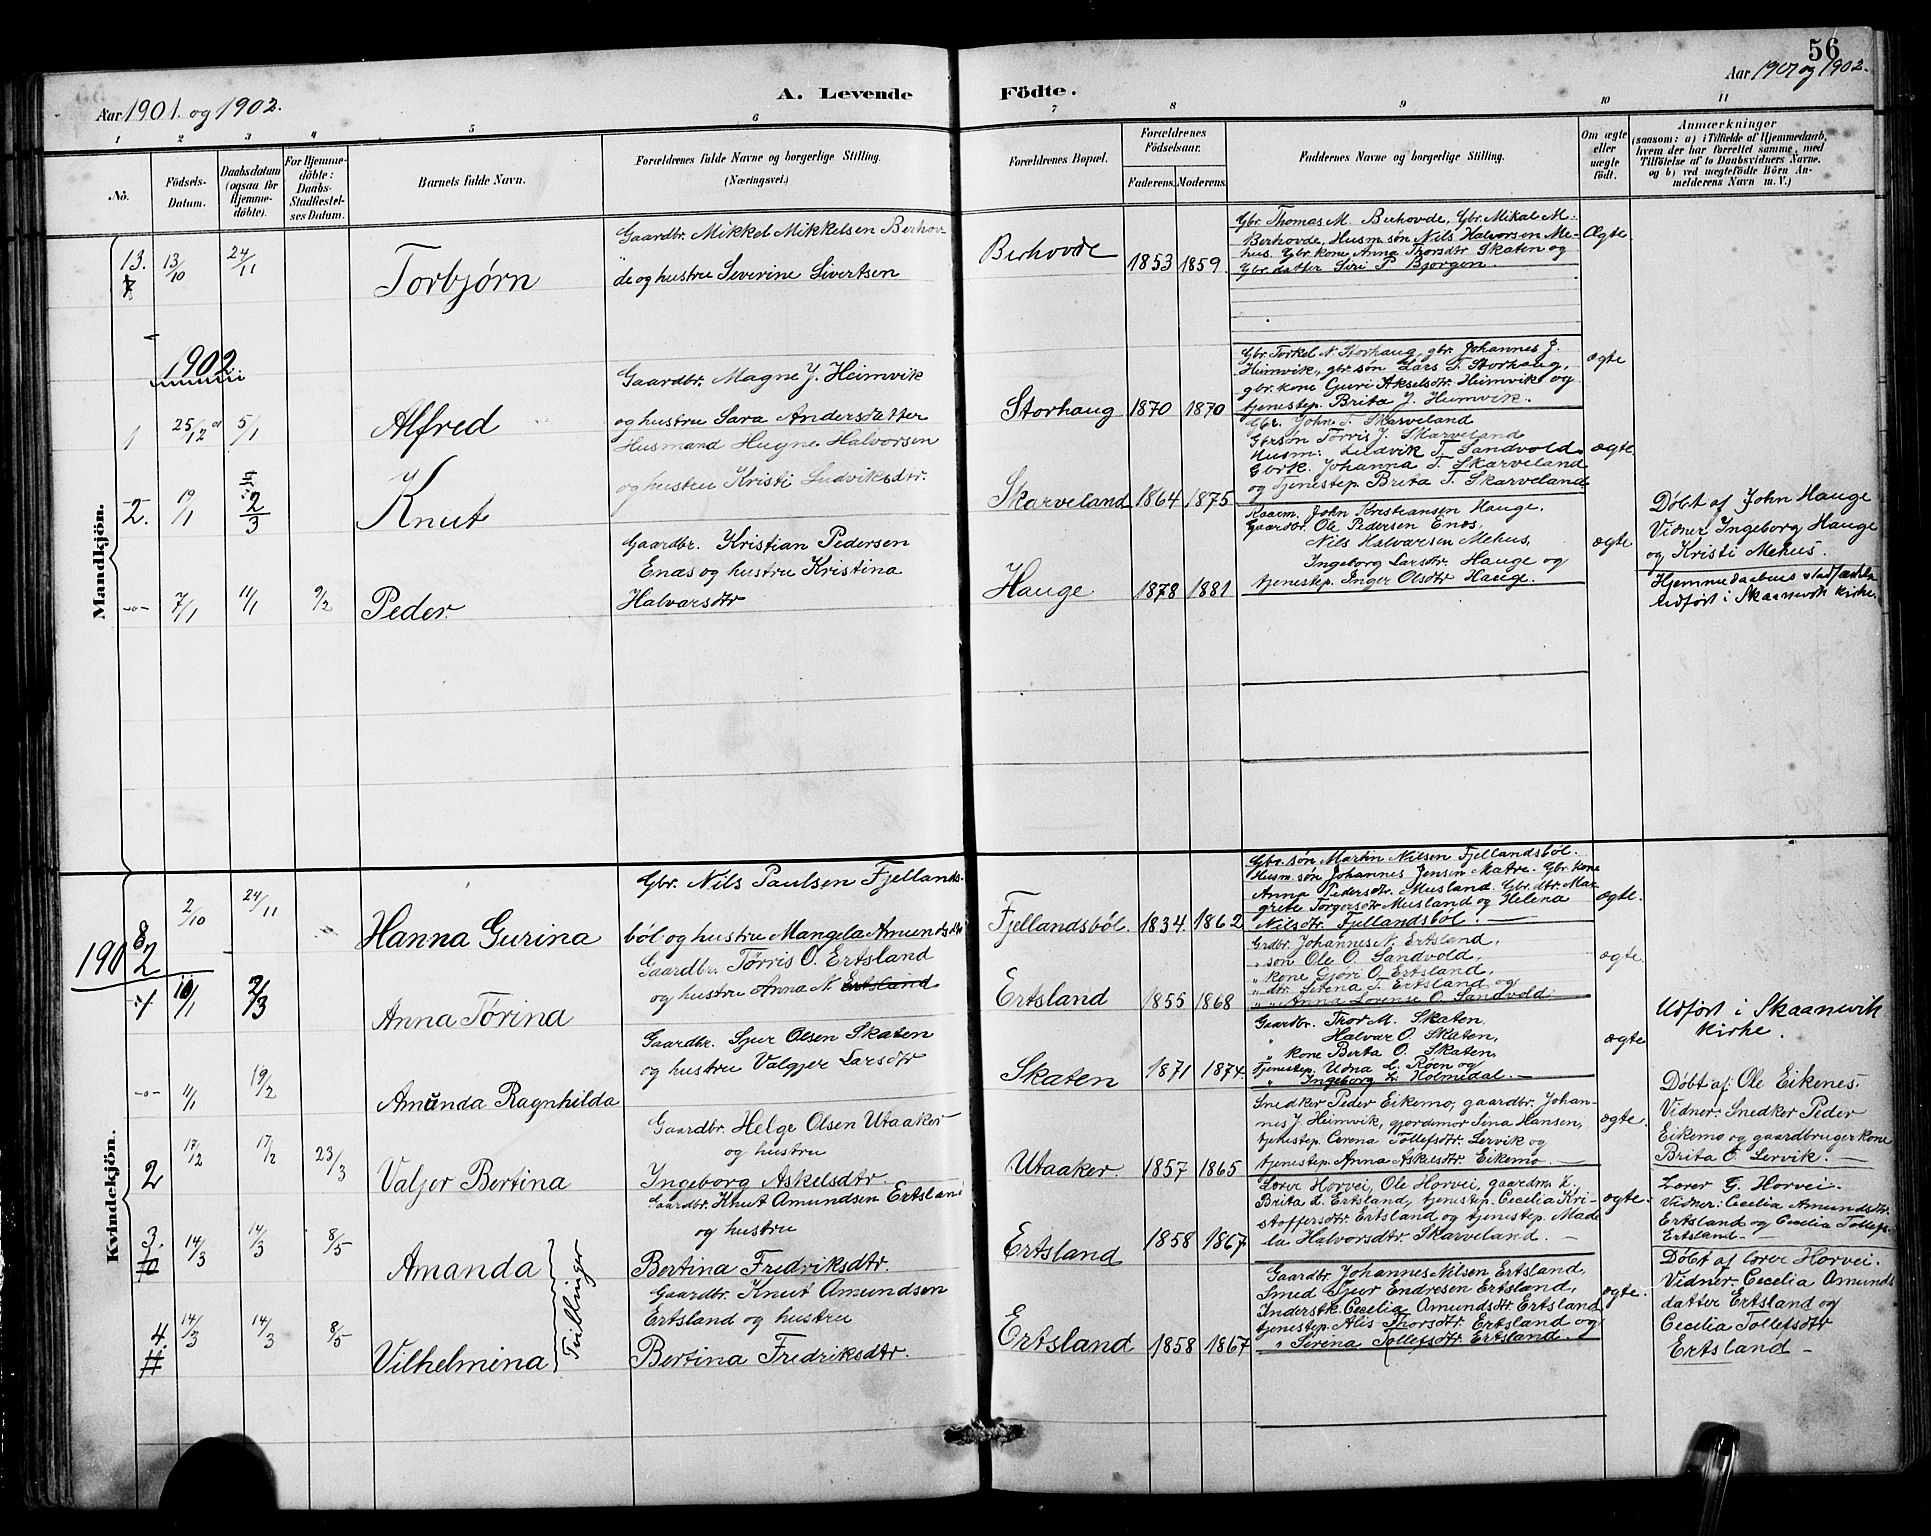 56
Aar 1901. og 1902.
A. Levende Födte.
Aar 1901 og 1902.
1 2 3 4 5 6 7 8 9 10 11
No.
Födsels-
Datum.
Daabsdatum
(ogsaa for
Hjemme-
döbte).
For Hjemme-
döbte:
Daabs-
Stadfæstel-
ses Datum.
Barnets fulde Navn.
Forældrenes fulde Navne og borgerlige Stilling.
(Næringsvei.)
Forældrenes Bopæl.
Forældrenes
Födselsaar.
Faderens. Moderens.
Faddernes Navne og borgerlige Stilling.
Om ægte
eller
uægte
født.
Anmærkninger
(saasom: a) i Tilfælde af Hjemmedaab,
hvem der har forrettet samme, med
Tilföielse af to Daabsvidners Navne.
og b) ved uægtefödte Börn An-
melderens Navn m. V.)
Mandkjön.
13. 13/10 24/11
Torbjørn
Gaardbr. Mikkel Mikkelsen Berhov-
de og hustru Severine Sivertsen
Berhovde 1853 1859
Gbr. Thomas M. Berhovde, Gbr. Mikal M.
Berhovde, Husm. søn Nils Halvorsen Me-
hus. Gbr. kone Anna Thorsdtr Skaten og
Gbr. datter Siri P. Bjorgen.
Ægte
1902
1 25/12 5/1
Alfred
Gaardbr. Magne J. Heimvik
og hustru Sara Andersdatter
Storhaug 1870 1870
Gbr. Torkel N. Storhaug, gbr. Johannes J.
Heimvik, gbr. søn Lars T. Storhaug,
gbr. kone Guri Akselsdtr. Heimvik og
tjenestep. Brita J. Heimvik.
ægte
2. 19/1 2/3
Knut
Husmand Hugne Halvorsen
og hustru Kristi Ludviksdtr.
Skarveland 1864 1875
Gbr. John T. Skarveland
Gbrsøn Tørris J. Skarveland
Husm: Ludvik T. Sandvold.
Gbrk. Johanna T. Skarveland
og Tjenestep Brita T. Skarveland
ægte
-o- 7/1 11/1 9/2
Peder.
Gaardbr. Kristian Pedersen
Enæs og hustru Kristina
Halvarsdtr
Hauge 1878 1881
Kaarm. John Kristiansen Hauge,
Gaardbr. Ole Pedersen Enæs,
Nils Halvarsen Mehus,
Ingeborg Larsdtr. Hauge og
tjenestep. Inger Olsdtr Hauge.
ægte
Døbt af John Hauge
Vidner Ingeborg Hauge
og Kristi Mehus.
Hjemmedaabens stadfæstelse
Udført i Skaanevik Kirke.
Kvindekjön.
8 2/10 24/11
Hanna Gurina
Gbr. Nils Paulsen Fjellands-
böl og hustru Mangela Amundsdtr
Fjellandsböl. 1834 1862
Gbr. søn Martin Nilsen Fjellandsböl.
Husm. søn Johannes Jensen Matre. Gbr. kone
Anna Pedersdtr. Musland. Gbr. dtr. Mar-
grete Torgersdtr Musland og Helena
Nilsdtr. Fjellandsböl.
ægte.
1902
1 10/1 2/3
Anna Tørina
Gaardbr. Tørris O. Ertsland
og hustru Anna N. Ertsland
Ertsland 1855 1868
Grdbr. Johannes N. Ertsland,
" søn Ole O. Sandvold,
" kone Gjøri O. Ertsland,
" dtr. Serena T. Ertsland og
" " Anna Lorense O. Sandvold.
ægte.
Udført i Skaanevik
kirke.
-o- 11/1 19/2
Amunda Ragnhilda
Gaardbr. Sjur Olsen Skaten
og hustru Valgjer Larsdtr
Skaten 1871 1874.
Gaardbr. Thor M. Skaten,
" Halvar O. Skaten,
" kone Berta O. Skaten,
Tjenestep. Udna L. Røen og
" Ingeborg L. Holmedal.
ægte
2 17/2 17/2 23/3
Valjer Bertina
Gaardbr. Helge Olsen Utaaker
og hustru
Ingeborg Askelsdtr.
Utaaker. 1857 1865
Snedker Peder Eikemo, gaardbr. Johan-
nes J. Heimvik, gjordmor Sina Hansen,
tjenestep. Cerena Tollefsdtr. Lervik og
tjenestep. Anna Askelsdtr. Eikemo.
ægte.
Døbt af: Ole Eikenes
Vidner: Snedker Peder
Eikemo og gaardbrugerkone
Brita O Lervik.
3. 14/3 14/3 8/5
Amanda
Gaardbr. Knut Amundsen Ertsland
og hustru
Bertina Fredriksdtr.
Ertsland 1858 1867
Lærer Horvei, Ole Horvei, gaardm. L.
Brita L. Ertsland, tjenestep. Cecelia Kri-
stoffersdtr. Ertsland og tjenestep. Made
la Halvorsdtr. Skarveland.
ægte.
Lærer G. Horvei.
Vidner: Cecelia Amundsdtr.
Ertsland og Cecilia Tollefs-
Ertsland.
Tvillinger
4. 14/3 14/3 8/5
Vilhelmina
Gaardbr. Knut Amundsen
Ertsland og hustru
Bertina Fredriksdtr.
Ertsland 1858 1867
Gaardbr. Johannes Nilsen Ertsland,
Smed Sjur Endresen Ertsland,
Inderstk. Cecelia Amundsdtr. Ertsland
tjenestep. Alis Thorsdtr. Ertsland og
" Serena Tollefsdtr. Ertsland.
ægte.
Døbt af lærer Horvei.
Vidner: Cecelia Amunds
datter Ertsland og
Cecelia Tollefsdtr
Ertsland